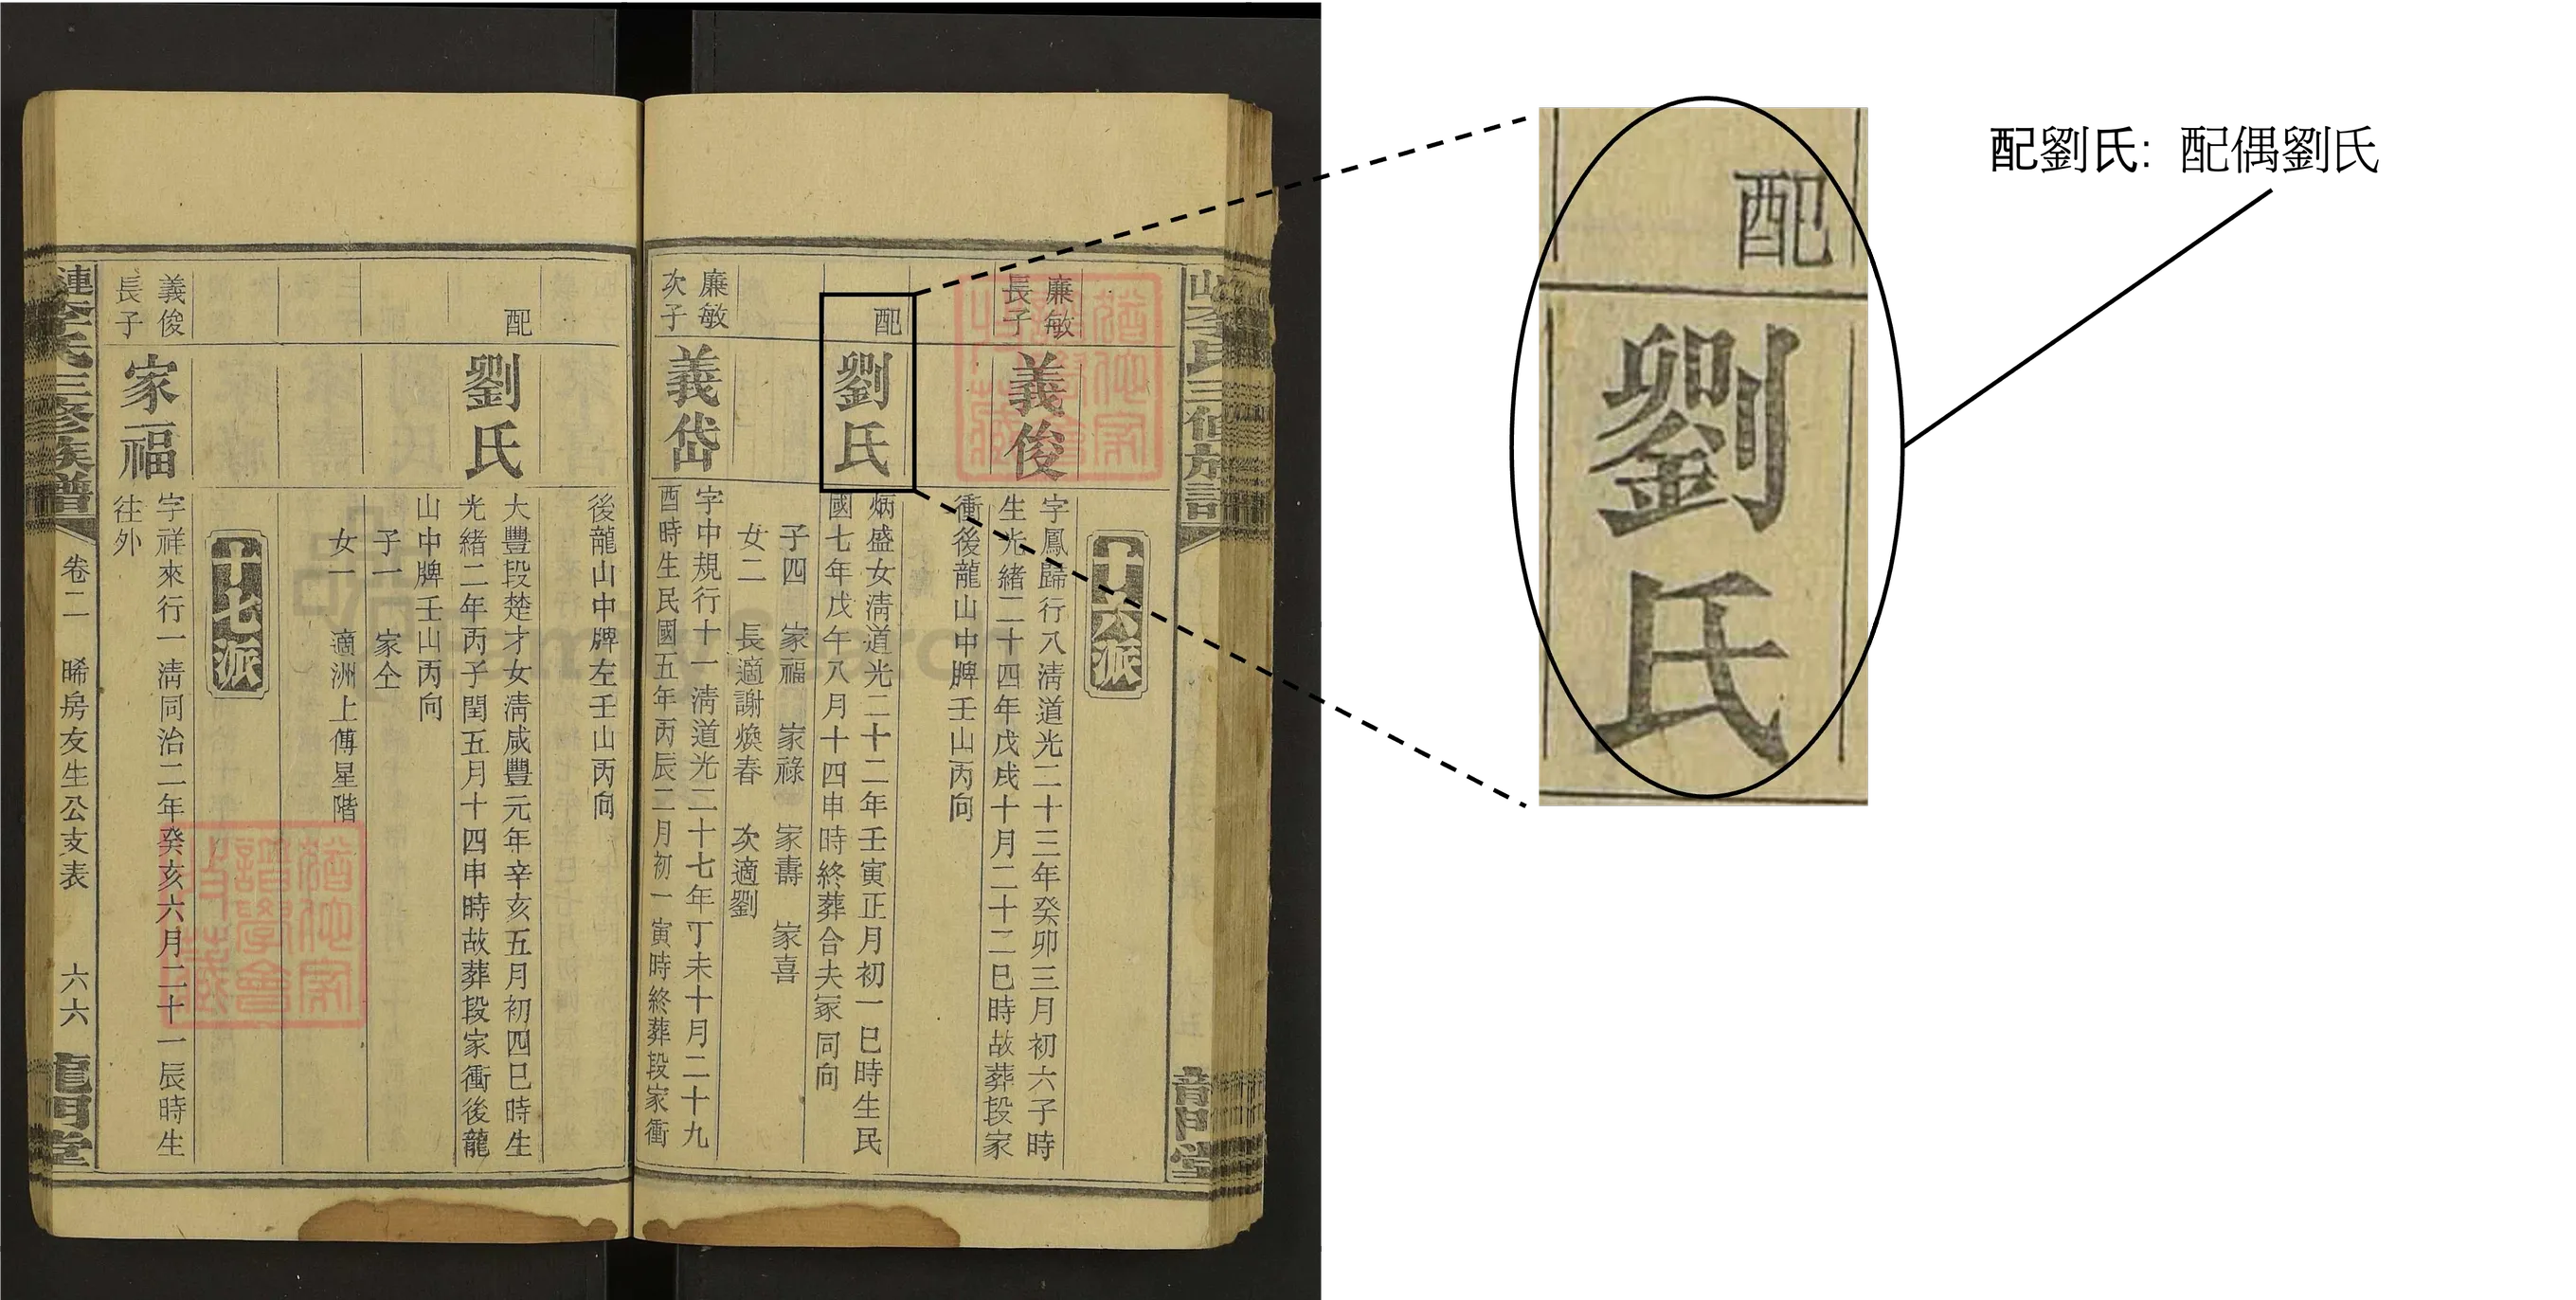 李氏三修族譜
龍門堂
十六派
廉敏
長子
義俊
字鳳歸行八淸道光二十三年癸卯三月初六子時
生光緒二十四年戊戌十月二十二巳時故葬段家
衝後龍山中牌壬山丙向
配
劉氏
炳盛女淸道光二十二年壬寅正月初一巳時生民
國七年戊午八月十四申時終葬合夫冢同向
子四 家福 家祿 家壽 家喜
女二 長適謝煥春 次適劉
廉敏
次子
義岱
字中規行十一淸道光二十七年丁未十月二十九
酉時生民國五年丙辰二月初一寅時終葬段家衝
後龍山中牌左壬山丙向
配
劉氏
大豐段楚才女淸咸豐元年辛亥五月初四巳時生
光緒二年丙子閏五月十四申時故葬段家衝後龍
山中牌壬山丙向
子一 家仝
女一 適洲上傅星階
十七派
義俊
長子
家福
字祥來行一淸同治二年癸亥六月二十一辰時生
往外
漣李氏三修族譜
卷二 晞房友生公支表 六六
龍門堂
配
劉
氏
配劉氏: 配偶劉氏